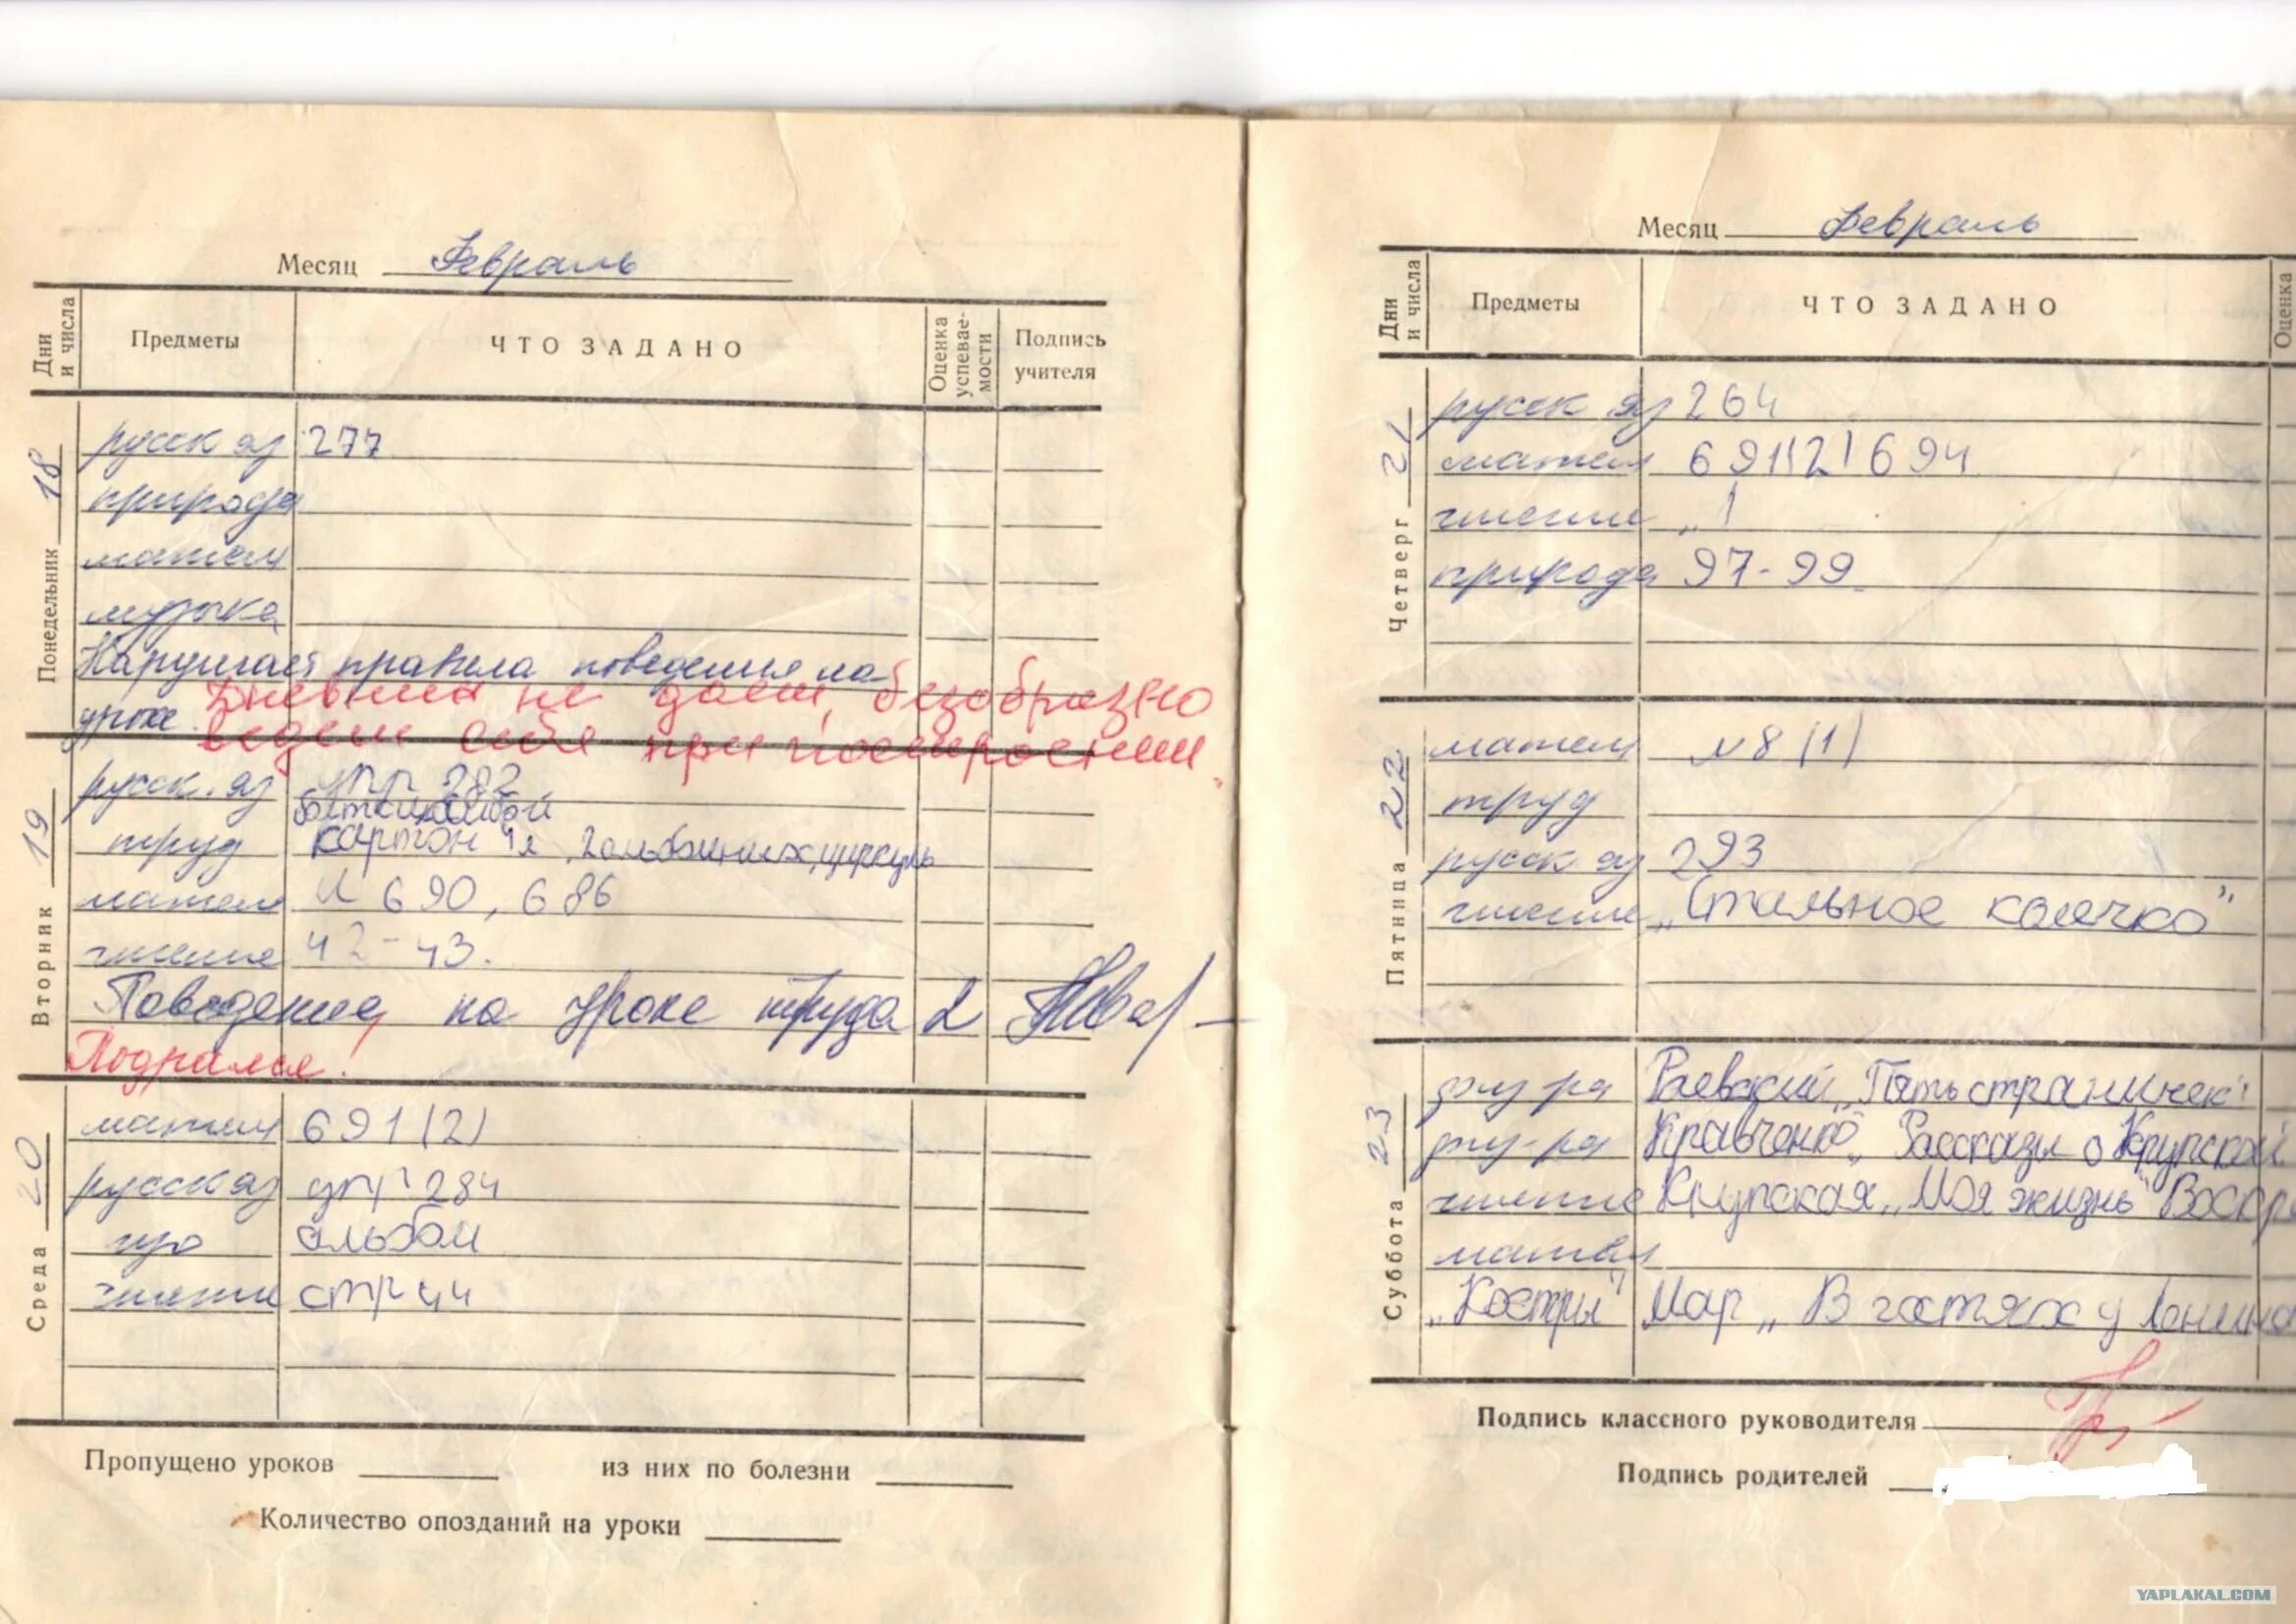 Месяц Февраль
Дни и числа Предметы ЧТО ЗАДАНО Оценка успеваемости Подпись учителя
Понедельник 18
русск яз 277
природа
матем
музыка
Нарушает правила поведения на
уроке.
Дневник не дает, безобразно
ведет себя при построении.
Вторник 19
русск. яз упр 282
труд картон 2 альбомных, циркуль
матем № 690, 686
чтение 42-43.
Поведение на уроке труда 2
Подрался!
Среда 20
матем 691(2)
русск яз упр 284
изо альбом
чтени стр 44
Пропущено уроков из них по болезни
Количество опозданий на уроки
Месяц Февраль
Дни и числа Предметы ЧТО ЗАДАНО Оценка
Четверг 21
русск яз 264
матем 691(2) 694
чтение „ 1
природа 97-99
Пятница 22
матем №8(1)
труд
русск яз 293
чтение „Стальное колечко"
Суббота 23
физ-ра Раевский „Пять страничек"
физ-ра Кравченко „Рассказы о Крупской
чтение Крупская „Моя жизнь" Воскр
матем
„Костры" Мар „В гостях у Ленина
Подпись классного руководителя
Подпись родителей
YAPLAKAL.COM